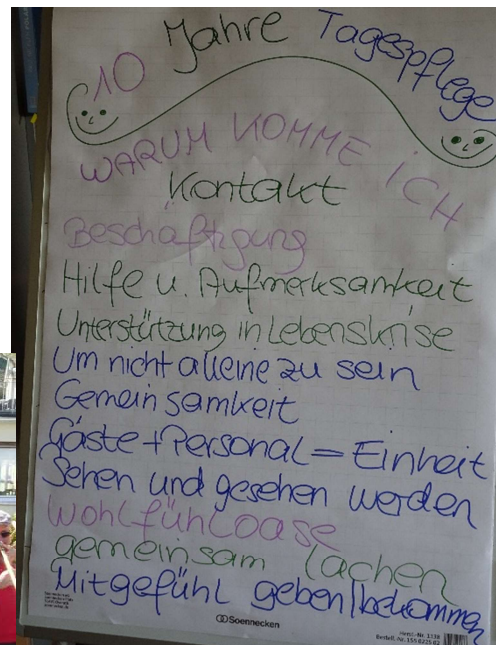 10 Jahre Tagespflege
WARUM KOMME ICH
Kontakt
Beschäftigung
Hilfe u. Aufmerksamkeit
Unterstützung in Lebenskrise
Um nicht alleine zu sein
Gemeinsamkeit
Gäste + Personal = Einheit
Sehen und gesehen werden
Wohlfühloase
gemeinsam lachen
Mitgefühl geben/bekommen
Soennecken